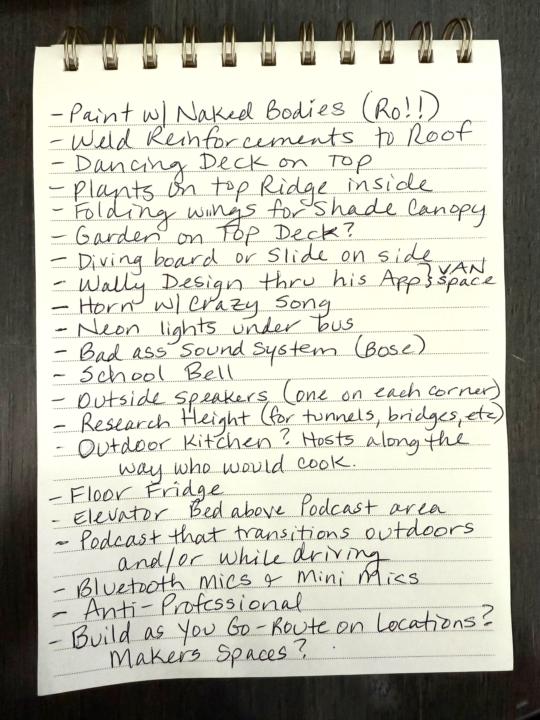 - Paint w/ Naked Bodies (Ro!!)
- Weld Reinforcements to Roof
- Dancing Deck on Top
- Plants on top Ridge inside
- Folding wings for Shade Canopy
- Garden on Top Deck?
- Diving board or Slide on side
- Wally Design thru his App } VAN space
- Horn w/ Crazy Song
- Neon lights under bus
- Bad ass Sound System (Bose)
- School Bell
- Outside speakers (one on each corner)
- Research Height (for tunnels, bridges, etc)
- Outdoor Kitchen? Hosts along the
way who would cook.
- Floor Fridge
- Elevator Bed above Podcast area
- Podcast that transitions outdoors
and/or while driving
- Bluetooth mics & Mini Mics
- Anti-Professional
- Build as You Go-Route on Locations?
Makers Spaces?